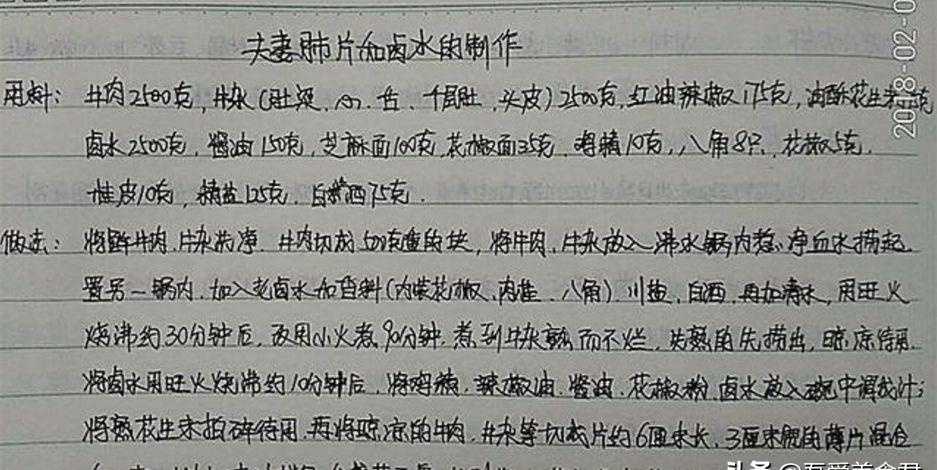 夫妻肺片加卤水的制作
用料：牛肉2500克，牛杂（肚梁、心、舌、千层肚、头皮）2500克，红油辣椒175克，油酥花生米
卤水2500克，酱油150克，芝麻面100克，花椒面35克，鸡精10克，八角8只，花椒5克，
桂皮10克，精盐125克，白酒75克．
做法：将鲜牛肉，牛杂洗净，牛肉切成500克重的块，将牛肉、牛杂放入沸水锅内煮净血水捞起，
置另一锅内，加入老卤水加香料（内装花椒、肉桂、八角）川盐，白酒，再加清水，用旺火
烧沸约30分钟后，改用小火煮90分钟，煮到牛杂熟而不烂，先熟的先捞出，晾凉待用．
将卤水用旺火烧沸约10分钟后，将鸡精、辣椒油、酱油、花椒粉、卤水放入碗中调成汁；
将熟花生米拍碎待用，再将晾凉的牛肉、牛杂等切成片约6厘米长，3厘米宽的薄片混合
2018-02-0
头条@吾爱美食君